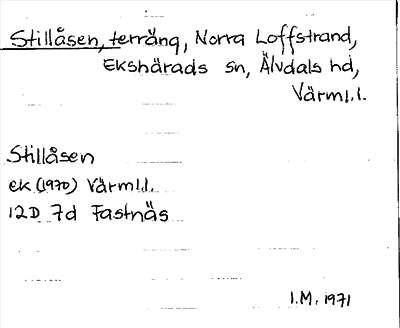 Stillåsen, terräng, Norra Loffstrand,
Ekshärads sn, Älvdals hd,
Värml.l.
Stillåsen
ek (1970) Värml.l.
12D 7d Fastnäs
I.M. 1971